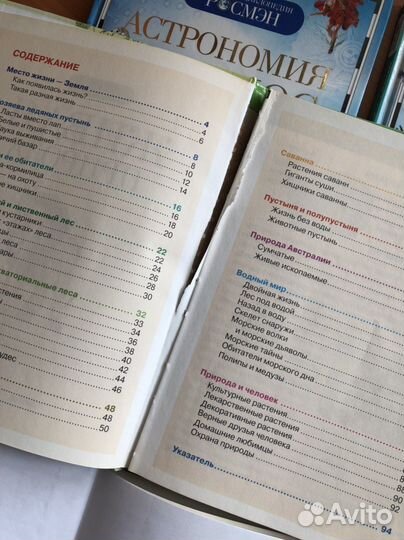 РОСМЭН
АСТРОНОМИЯ
СОДЕРЖАНИЕ
Место жизни — Земля 4
Как появилась жизнь? 4
Такая разная жизнь 6
ледяных пустынь 8
Ласты вместо лап 8
и пушистые 10
выживания 12
базар 14
и ее обитатели 16
-кормилица 16
— на охоту 18
хищники 20
й и лиственный лес 22
и кустарники 22
«этажах» леса 24
леса 26
28
30
леса 32
33
34
36
38
40
42
44
46
48
48
50
Саванна
Растения саванн
Гиганты суши
Хищники саванны
Пустыня и полупустыня
Жизнь без воды
Животные пустынь
Природа Австралии
Сумчатые
Живые ископаемые
Водный мир
Двойная жизнь
Лес под водой
Назад в воду
Скелет снаружи
Морские волки
и морские дьяволы
Морские тайны
Обитатели морского дна
Полипы и медузы
Природа и человек
Культурные растения
Лекарственные растения
Декоративные растения
Верные друзья человека
Домашние любимцы 90
Охрана природы 92
Указатель 94
Avito